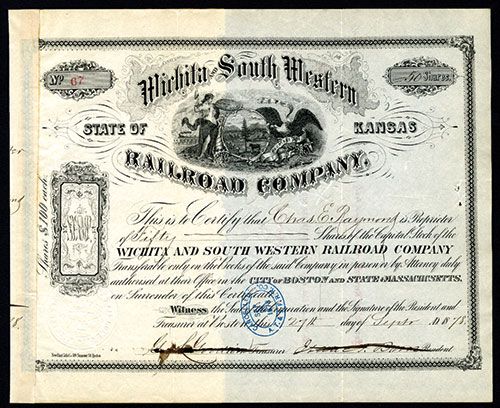 No 67
50 Shares
Wichita and South Western
STATE OF KANSAS
RAILROAD COMPANY.
Shares $100 each
$100
This is to Certify that Chas E. Raymond is Proprietor
of Fifty Shares of the Capital Stock of the
WICHITA AND SOUTH WESTERN RAILROAD COMPANY
Transferable only on the books of the said Company, in person or by Attorney duly
authorized at their Office in the CITY OF BOSTON AND STATE OF MASSACHUSETTS.
on Surrender of this Certificate
Witness the Seal of the Corporation and the Signature of the President and
Treasurer at Boston this 27th day of Sept 1878.
Treasurer
President